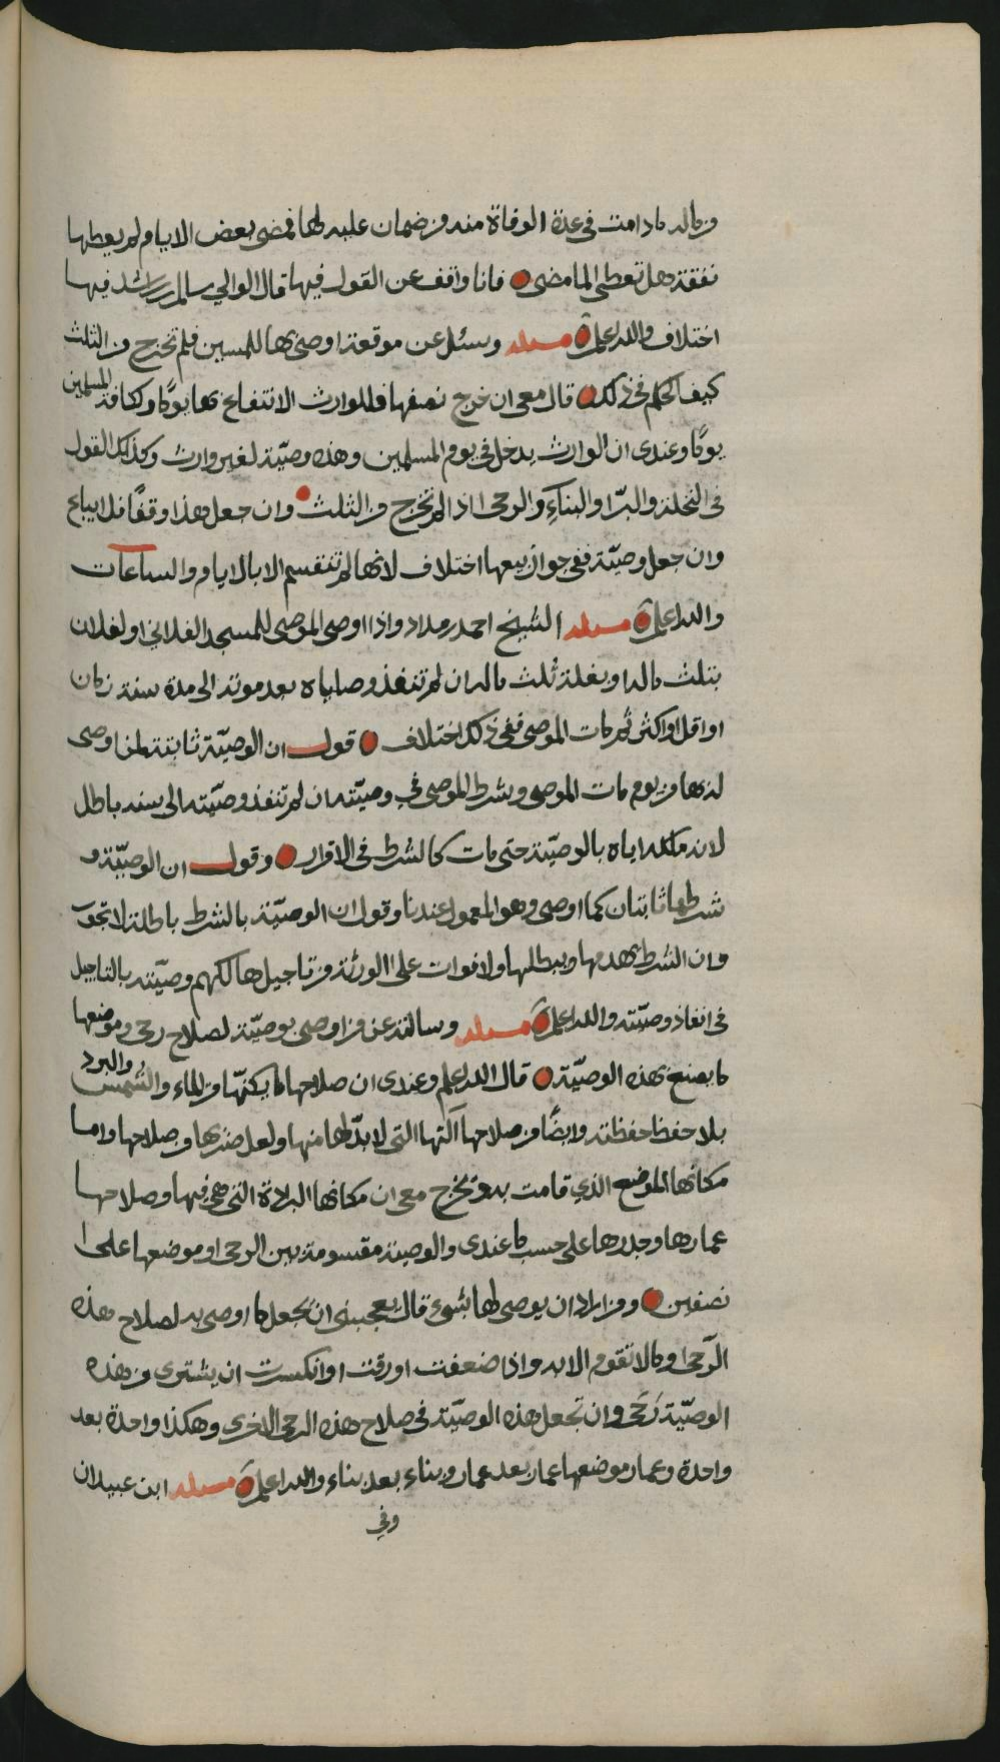 من ماله ما دامت في عدة الوفاة منه من ضمان عليه لها فمضى بعض الايام ولم يعطها
نفقة هل تعطى لما مضى فانا واقف عن القول فيها قال الوالي سالم بن راشد فيها
اختلاف والله اعلم مسئلة وسئل عن موقعة اوصي بها للمسجد فلم تخرج من الثلث
كيف الحكم في ذلك قال معي ان خرج نصفها فللوارث الانتفاع بها يومًا ولكافة المسلمين
يومًا وعندي ان الوارث يدخل في يوم المسلمين وهذه وصيّة لغير وارث وكذلك القول
في النخلة والبئر والبناء والرحى اذا لم تخرج من الثلث وان جعل هذا وقفًا فلا يباع
وان جعل وصيّة ففي جواز بيعها اختلاف لانها لم تنقسم الا بالايام والساعات
والله اعلم مسئلة الشيخ احمد بن مداد واذا اوصى الموصي للمسجد الفلاني او لفلان
بثلث ماله او بغلة ثلث ماله ان لم تنفذ وصاياه بعد موته الى مدة سنة زمان
او اقل او اكثر ثم مات الموصي ففي ذلك اختلاف قول ان الوصيّة ثابتة لمن اوصى
له بها من يوم مات الموصي وشرط الموصي في وصيّته ان لم تنفذ وصيّته الى سنة باطل
لانه ملكه اياه بالوصيّة حتى مات كالشرط في الاقرار وقول ان الوصيّة و
شرطها ثابتان كما اوصى وهو المعمول عندنا وقول ان الوصيّة بالشرط باطلة لا تجوز
وان الشرط يهدمها ويبطلها ولا فوات على الورثة من تاجيل هالكهم وصيّته بالتاجيل
في انفاذ وصيّته والله اعلم مسئلة وسالته عن من اوصى بوصيّة لصلاح رحى وموضعها
ما يصنع بهذه الوصيّة قال الله اعلم وعندي ان صلاحها ما يكنّها من الماء والشمس والبرد
بلا حفظ حفظته وايضًا من صلاحها آلتها التي لا بدّ لها منها ولعل ضربها من صلاحها واما
مكانها الموضع الذي قامت به ويخرج معي ان مكانها البلدة التي هي فيها وصلاحها
عمارها وجدرها على حسب ما عندي والوصية مقسومة بين الرحى وموضعها على
نصفين ومن اراد ان يوصي لها بشيء قال يعجبني ان يجعل ما اوصى به لصلاح هذه
الرّحى وما لا تقوم الا به واذا ضعفت او رقت او انكسرت ان يشترى من هذه
الوصيّة رَحَى وان تجعل هذه الوصيّة في صلاح هذه الرحى الاخرى وهكذا واحدة بعد
واحدة وعمار موضعها عمار بعد عمار وبناء بعد بناء والله اعلم مسئلة ابن عبيدان
وفي